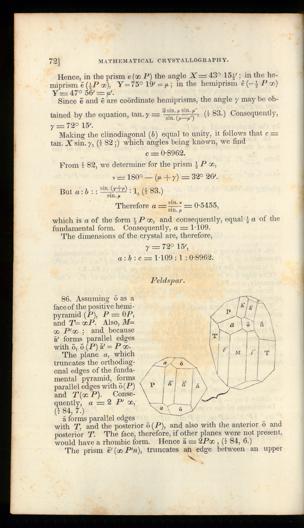 72]
MATHEMATICAL CRYSTALLOGRAPHY.
Hence, in the prism e (∞ P) the angle X = 43° 15½′; in the he-
miprism ē (½ P ∞), Y = 75° 19′ = μ; in the hemiprism ě (— ½ P ∞)
Y = 47° 56′ = μ′.
Since ē and ě are coördinate hemiprisms, the angle γ may be ob-
tained by the equation, tan. γ = 2 sin. μ sin. μ′ / sin. (μ—μ′), (§ 83.) Consequently,
γ = 72° 15′.
Making the clinodiagonal (b) equal to unity, it follows that c =
tan. X sin. γ, (§ 82;) which angles being known, we find
c = 0·8962.
From § 82, we determine for the prism ½ P ∞,
ν = 180° — (μ + γ) = 32° 26′.
But a : b : : sin. (μ+γ) / sin. μ : 1, (§ 83.)
Therefore a = sin. ν / sin. μ = 0·5455,
which is a of the form ½ P ∞, and consequently, equal ½ a of the
fundamental form. Consequently, a = 1·109.
The dimensions of the crystal are, therefore,
γ = 72° 15′,
a : b : c = 1·109 : 1 : 0·8962.
Feldspar.
86. Assuming ö as a
face of the positive hemi-
pyramid (P), P = 0P,
and T = ∞P. Also, M=
∞ P′∞ ; and because
ě′ forms parallel edges
with ö, ö (P) ě′ = P ∞.
The plane a, which
truncates the orthodiag-
onal edges of the funda-
mental pyramid, forms
parallel edges with ö (P)
and T (∞ P). Conse-
quently, a = 2 P′ ∞,
(§ 84, 7.)
ä forms parallel edges
with T, and the posterior ö (P), and also with the anterior ö and
posterior T. The face, therefore, if other planes were not present,
would have a rhombic form. Hence ä = 2P∞, (§ 84, 6.)
The prism ě′ (∞ P′n), truncates an edge between an upper